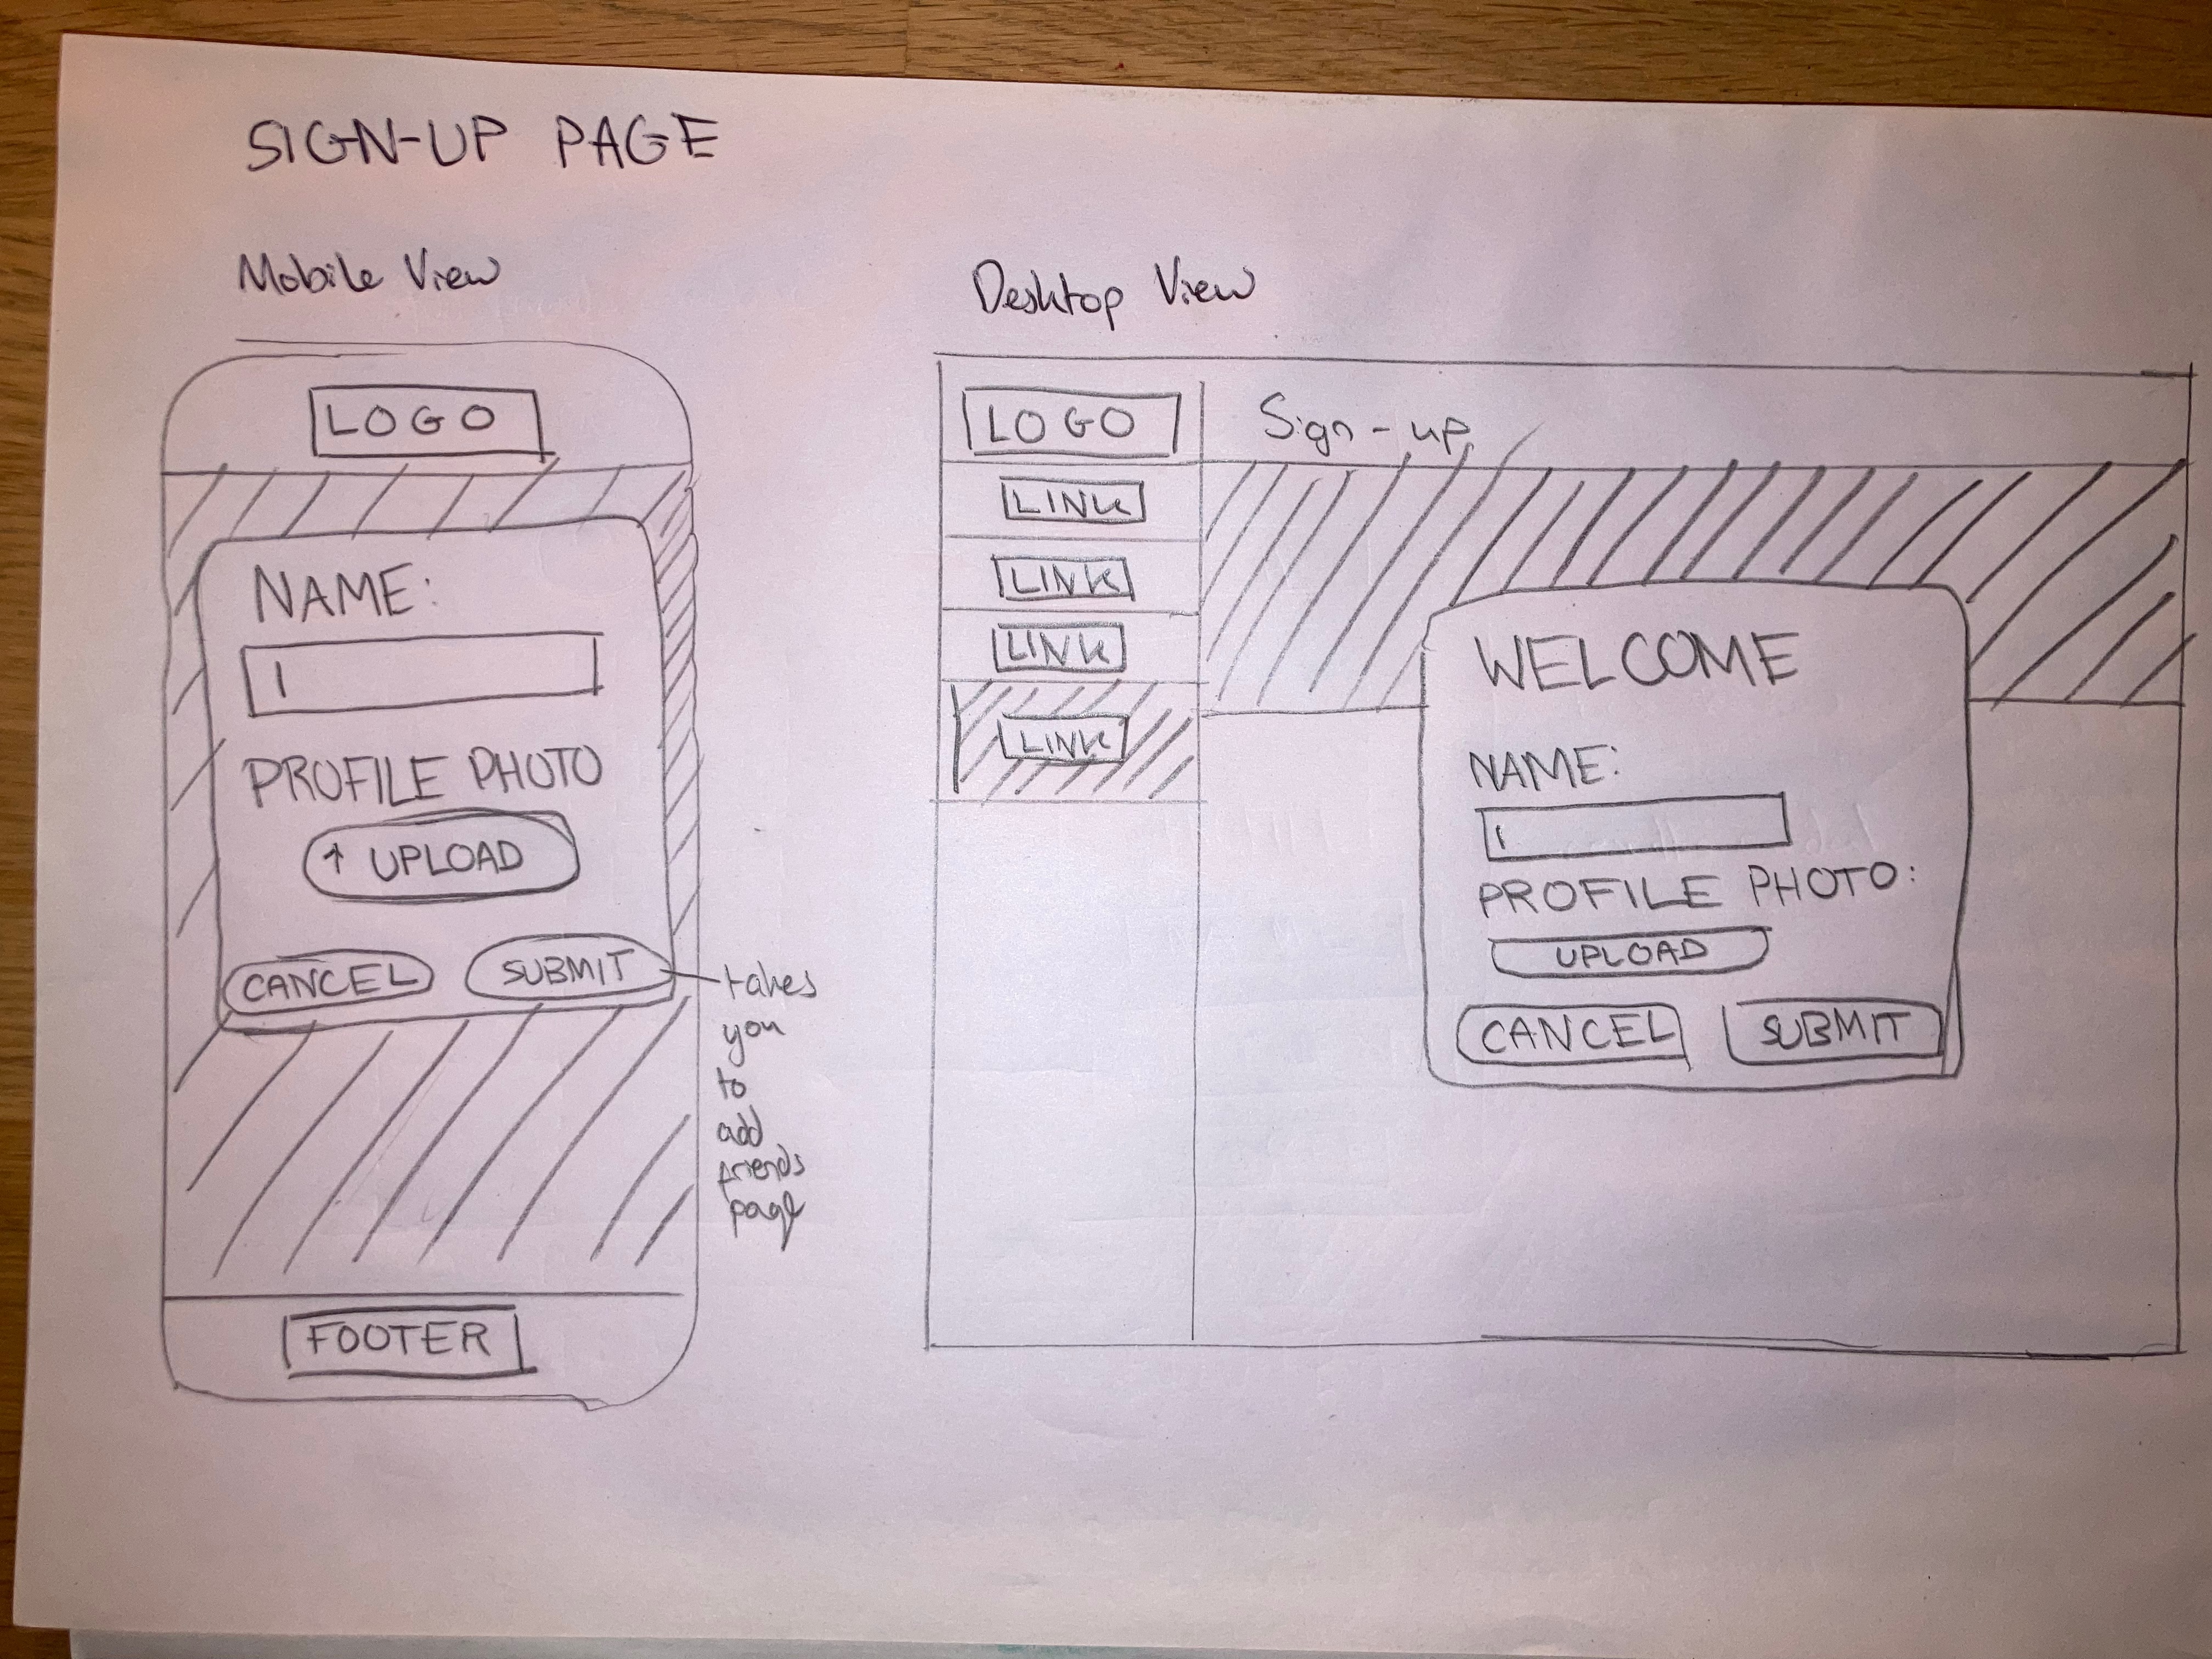 SIGN-UP PAGE
Mobile View
LOGO
NAME:
PROFILE PHOTO
↑ UPLOAD
CANCEL
SUBMIT
takes
you
to
add
friends
page
FOOTER
Desktop View
LOGO
Sign-up
LINK
LINK
LINK
LINK
WELCOME
NAME:
PROFILE PHOTO:
UPLOAD
CANCEL
SUBMIT